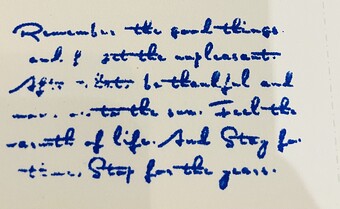 Remember the good things
and the unpleasant.
be thankful and
to the sun. Feel the
warmth of life. And Stay for
Stop for the years.